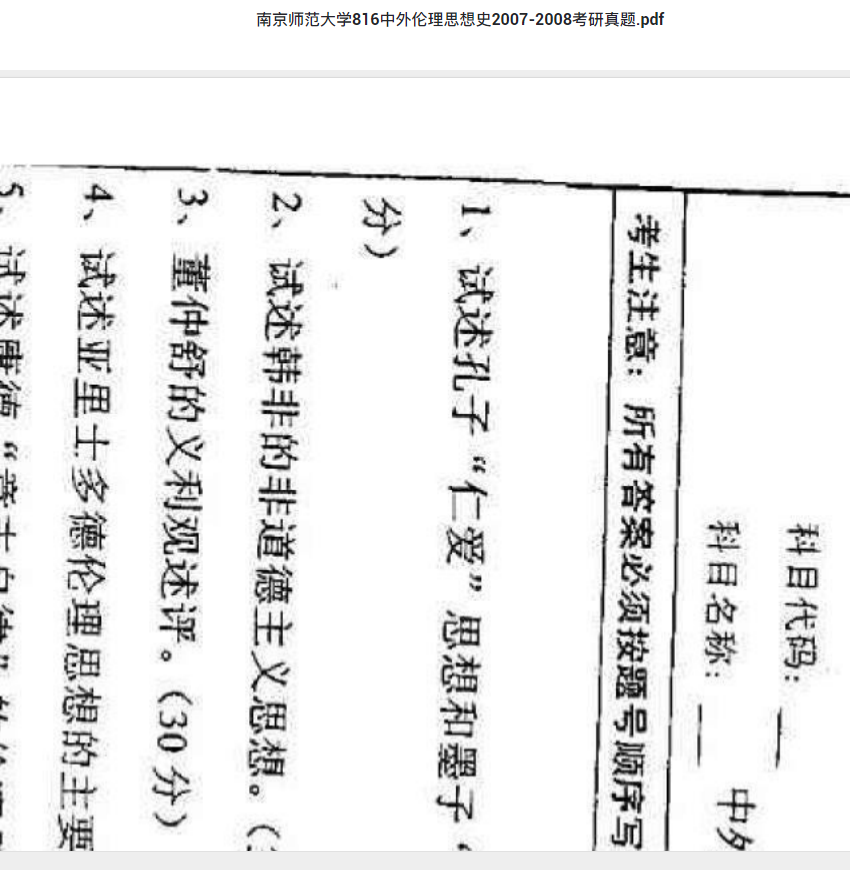 南京师范大学816中外伦理思想史2007-2008考研真题.pdf
科目代码：
科目名称： 中外
考生注意：所有答案必须按题号顺序写
1、试述孔子“仁爱”思想和墨子“
分）
2、试述韩非的非道德主义思想。（
3、董仲舒的义利观述评。（30分）
4、试述亚里士多德伦理思想的主要
5、试述康德“意志自律”